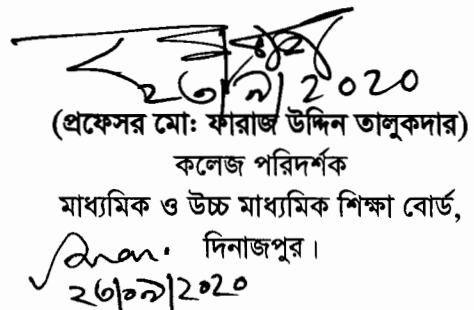 ২৩/৯/২০২০
(প্রফেসর মো: ফারাজ উদ্দিন তালুকদার)
কলেজ পরিদর্শক
মাধ্যমিক ও উচ্চ মাধ্যমিক শিক্ষা বোর্ড,
দিনাজপুর।
২৩/০৯/২০২০